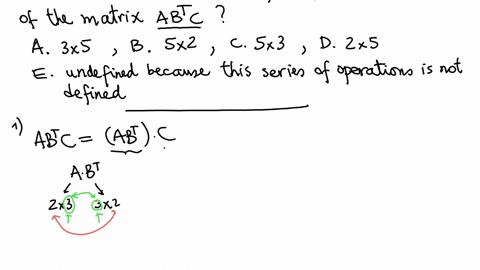 of the matrix ABᵀC ?
A. 3x5 , B. 5x2 , C. 5x3 , D. 2x5
E. undefined because this series of operations is not
defined
1) ABᵀC = (ABᵀ) . C
A.Bᵀ
2x3 3x2